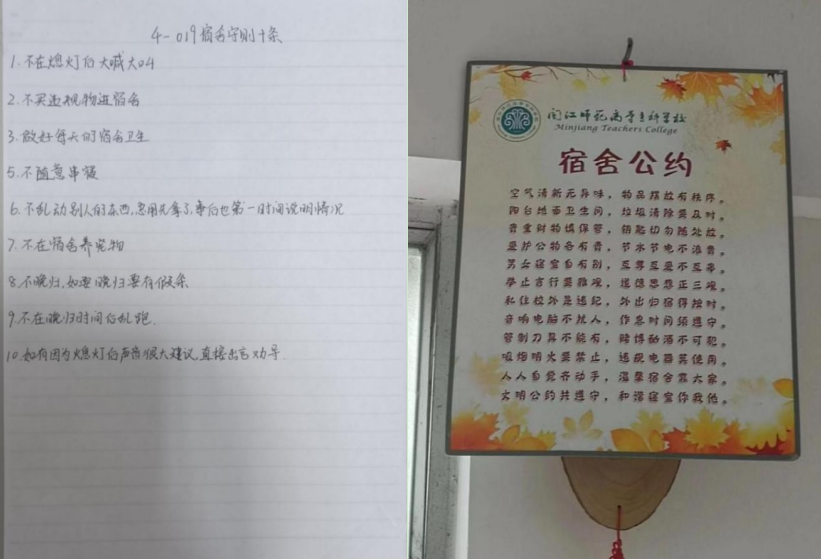 4-019宿舍守则十条
1.不在熄灯后大喊大叫
2.不买违规物进宿舍
3.做好每天的宿舍卫生
5.不随意串寝
6.不乱动别人的东西,急用先拿了,事后也第一时间说明情况
7.不在宿舍养宠物
8.不晚归,如要晚归要有假条
9.不在晚归时间后乱跑.
10.如有因为熄灯后声音很大建议直接出言劝导.
闽江师范高等专科学校
Minjiang Teachers College
宿舍公约
空气清新无异味,物品摆放有秩序。
阳台地面卫生间,垃圾清除要及时。
贵重财物慎保管,钥匙切勿随处放。
爱护公物各有责,节水节电不浪费。
男女寝室自有别,互尊互爱不互串。
举止言行要雅观,道德思想正三观。
私住校外是违纪,外出归宿得按时。
音响电脑不扰人,作息时间须遵守。
管制刀具不能有,赌博酗酒不可犯。
吸烟明火要禁止,违规电器莫使用。
人人自觉齐动手,温馨宿舍靠大家。
文明公约共遵守,和谐寝室你我他。